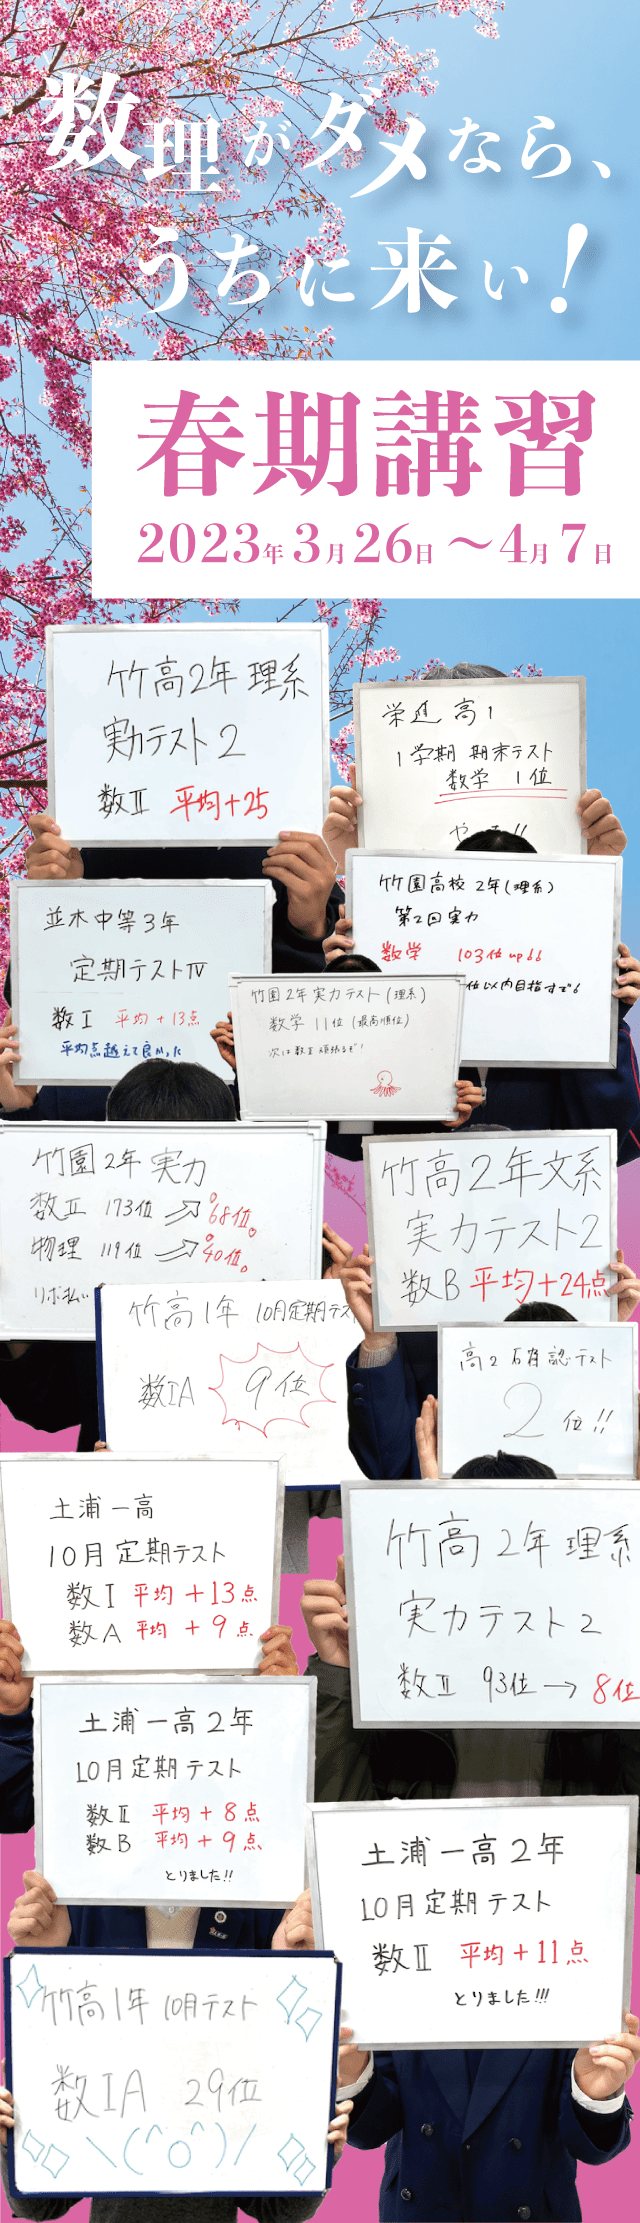 数理がダメなら、
うちに来い!
春期講習
2023年3月26日〜4月7日
竹高2年理系
実力テスト2
数Ⅱ 平均+25
栄進 高1
1学期 期末テスト
数学 1位
竹園高校 2年(理系)
第2回実力
数学 103位up
位以内目指すぞ
並木中等3年
定期テストⅣ
数Ⅰ 平均+13点
平均点越えて良かった
竹園2年実力テスト(理系)
数学 11位(最高順位)
次は数Ⅲ頑張るぞ!
竹園2年 実力
数Ⅱ 173位→68位。
物理 119位→40位。
リボ払い
竹高2年文系
実力テスト2
数B 平均+24点
竹高1年 10月定期テス
数ⅠA 9位
高2 確認テスト
2位!!
土浦一高
10月定期テスト
数Ⅰ 平均+13点
数A 平均+9点
竹高2年理系
実力テスト2
数Ⅱ 93位→8位
土浦一高2年
10月定期テスト
数Ⅱ 平均+8点
数B 平均+9点
とりました!!
土浦一高2年
10月定期テスト
数Ⅱ 平均+11点
とりました!!!
竹高1年 10月テスト
数ⅠA 29位
\(^o^)/